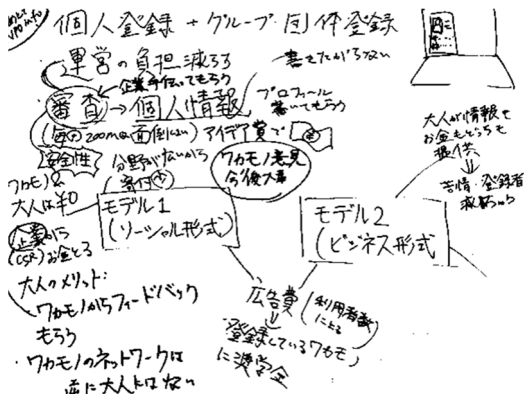 個人登録 + グループ・団体登録
運営の負担減らす
企業手伝ってもらう
書きたがらない
審査→個人情報
プロフィール
書いてもらう
アイデア賞で
安全性
分野がないから
寄付
ワカモノ意見
今後大事
ワカモノ&
大人は¥0
企業から
(CSR)お金とる
モデル1
(ソーシャル形式)
モデル2
(ビジネス形式
大人が情報を
お金もらっても
提供
苦情・登録者
大人のメリット:
ワカモノからフィードバック
もらう
・ワカモノのネットワークは
逆に大人にはない
広告費
(利用者数
による
登録しているワカモノ
に奨学金